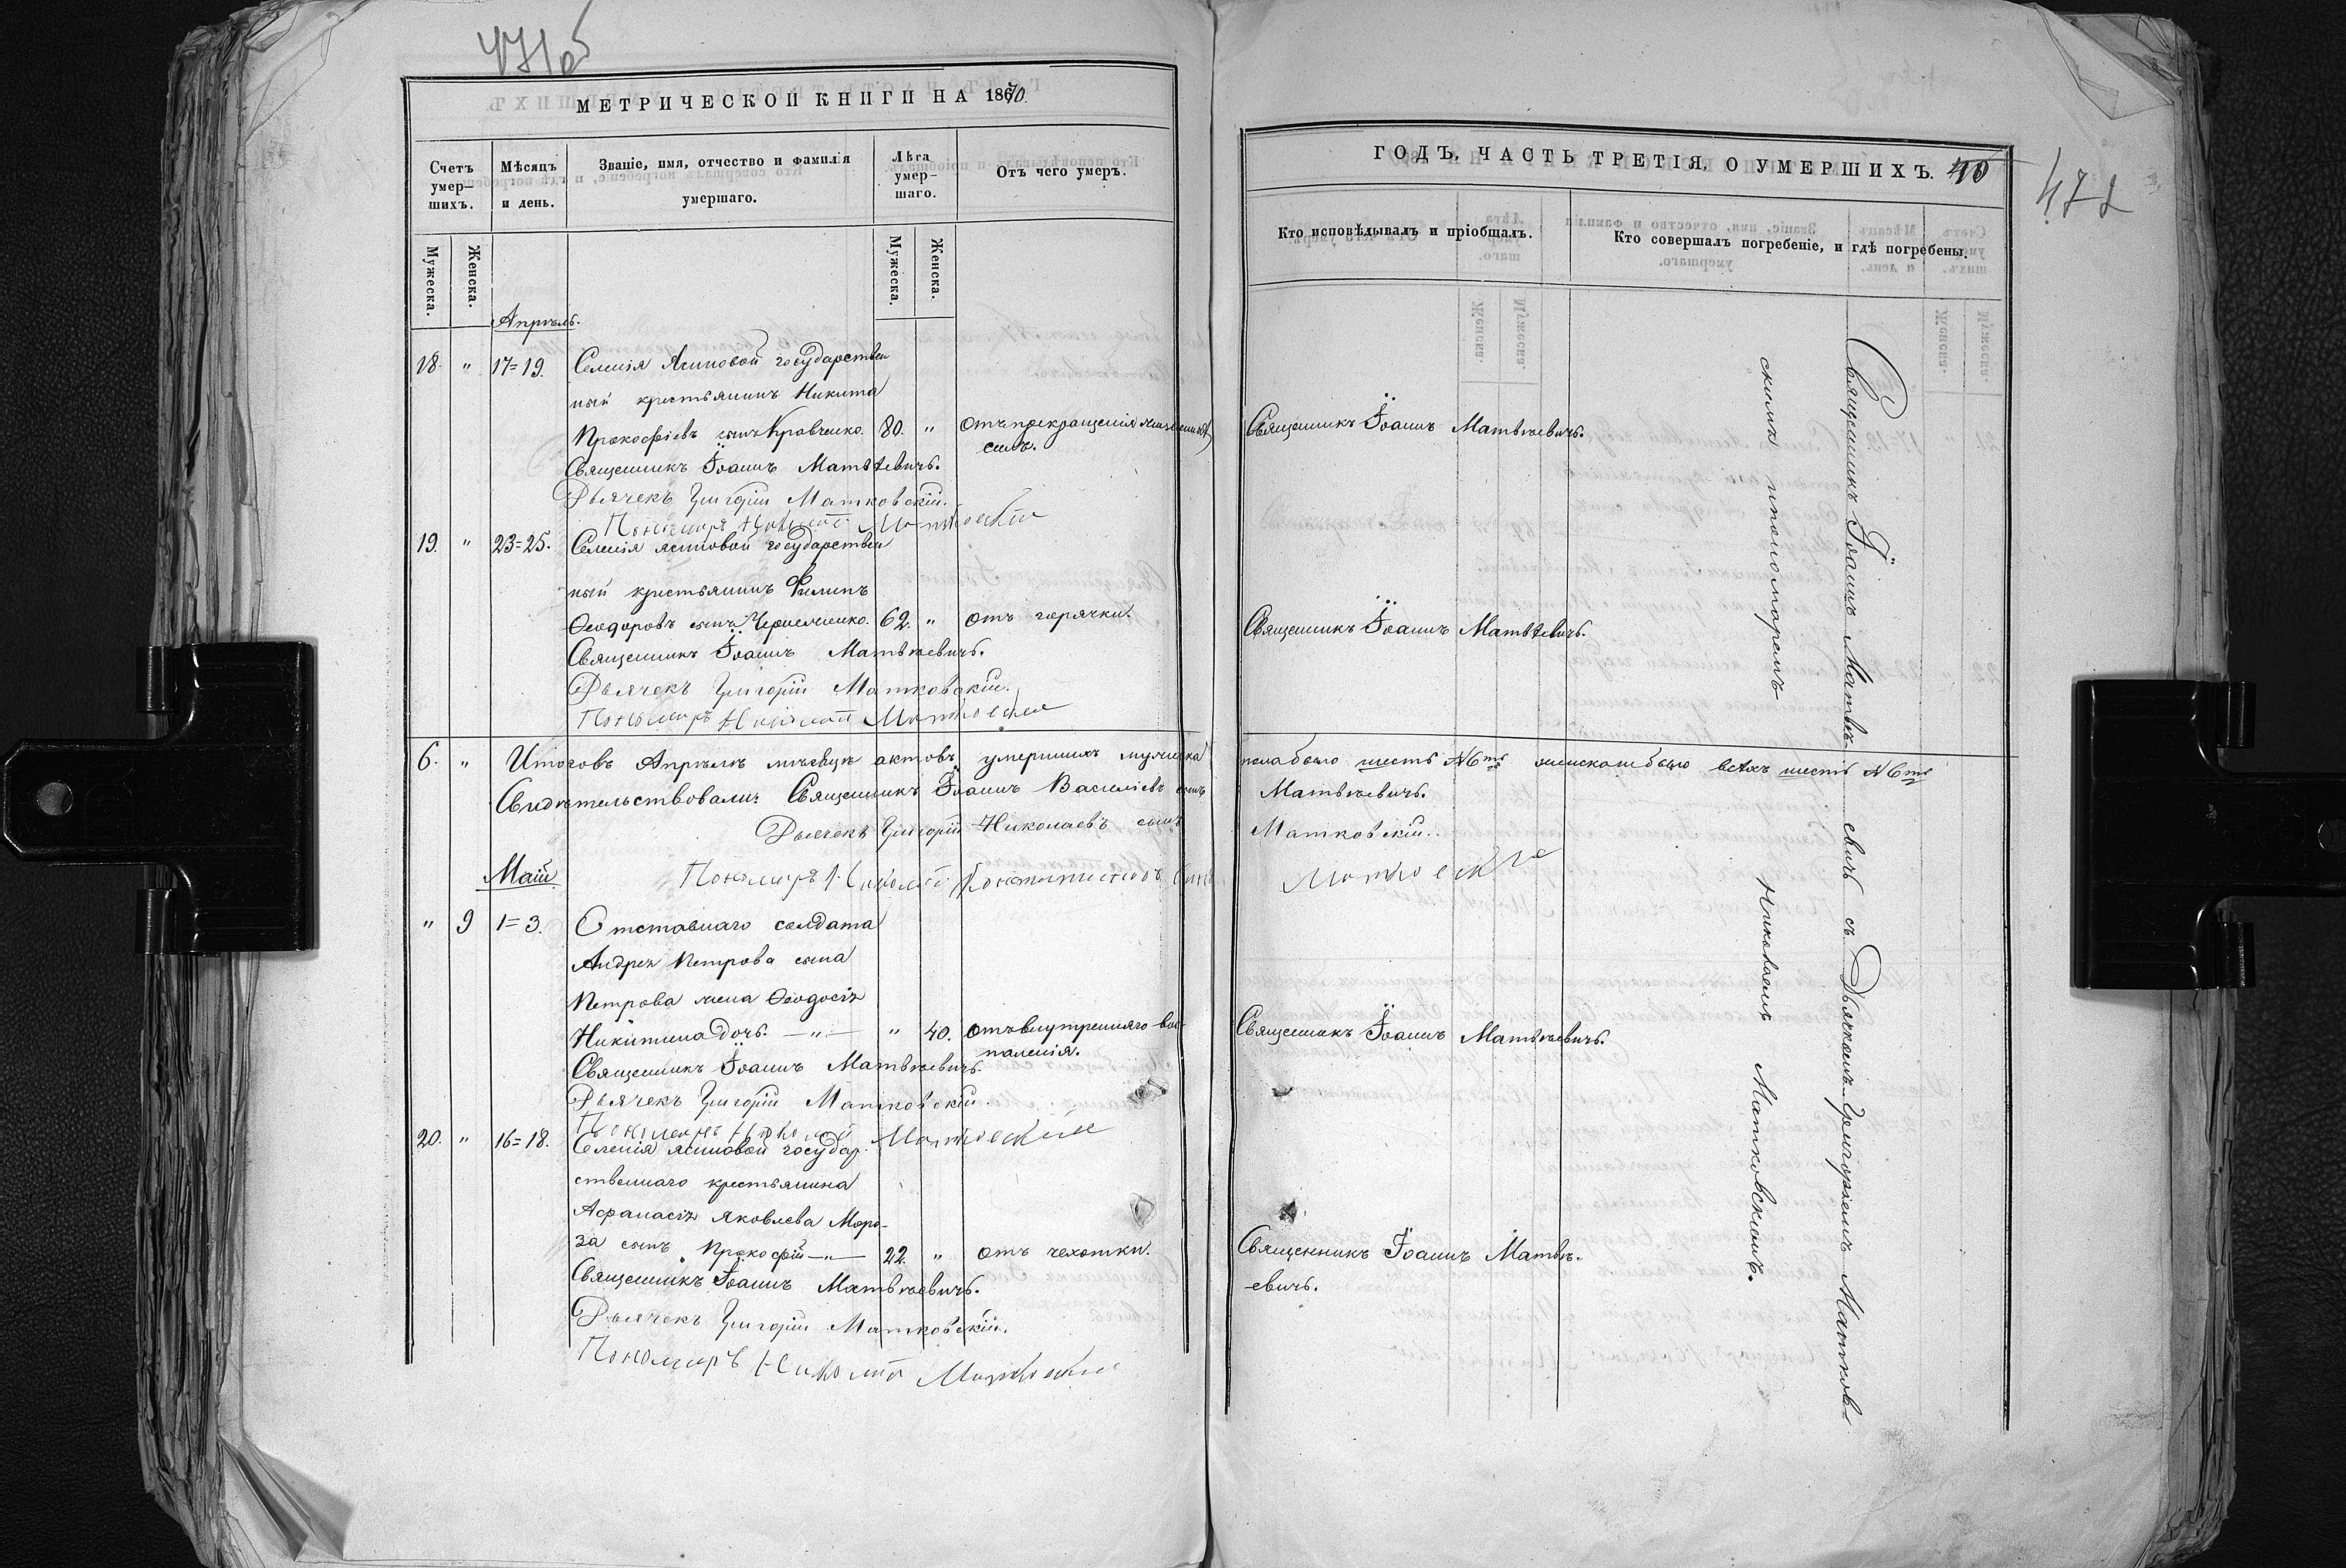 471об
МЕТРИЧЕСКОЙ КНИГИ НА 1870.
Счетъ умер-шихъ.
Мѣсяцъ и день.
Званіе, имя, отчество и фамилія умершаго.
Лѣта умер-шаго.
Отъ чего умеръ.
Мужеска.
Женска.
Мужеска.
Женска.
Апрѣль.
18. " 17=19. Селенія Ясиновой государствен
ный крестьянинъ Никита
Прокофіевъ сынъ Кравченко. 80. " Отъ прекращенія жизненныхъ
силъ.
Священникъ Іоаннъ Матвѣевичъ.
Дьячекъ Григорій Матковскій.
Пономарь Николай Матковскій
19. " 23=25. Селенія Ясиновой государствен
ный крестьянинъ Филипъ
Ѳеодоровъ сынъ 62. " отъ горячки.
Священникъ Іоаннъ Матвѣевичъ.
Дьячекъ Григорій Матковскій.
Пономарь Николай Матковскій
6. " Итого въ Апрѣлѣ мѣсяцѣ актовъ умершихъ мужеска
Свидѣтельствовали: Священникъ Іоаннъ Василіевъ сынъ
Дьячекъ Григорій Николаевъ сынъ
Май.
Пономарь Николай Константиновъ сынъ
" 9 1=3. Отставнаго солдата
Андрея Петрова сына
Петрова жена Ѳеодосія
Никитина дочь. —"— " 40. отъ внутренняго вос-
паленія.
Священникъ Іоаннъ Матвѣевичъ.
Дьячекъ Григорій Матковскій.
Пономарь Николай Матковскій
20. " 16=18. Селенія Ясиновой государ-
ственнаго крестьянина
Афанасія Яковлева Моро-
за сынъ Прокофій —"— 22. " отъ чехотки.
Священникъ Іоаннъ Матвѣевичъ.
Дьячекъ Григорій Матковскій.
Пономарь Николай Матковскій
472
ГОДЪ, ЧАСТЬ ТРЕТІЯ, О УМЕРШИХЪ.
Кто исповѣдывалъ и пріобщалъ.
Кто совершалъ погребеніе, и гдѣ погребены.
Священникъ Іоаннъ Матвѣевичъ.
Священникъ Іоаннъ Матвѣевичъ.
пола было шесть №6ть женска было всѣхъ шесть №6ть
Матвѣевичъ.
Матковскій.
Матковскій
Священникъ Іоаннъ Матвѣевичъ.
Священникъ Іоаннъ Матвѣ-
евичъ.
Священникъ Іоаннъ Матвѣевичъ съ Дьячкомъ Григоріемъ Матков-
скимъ и пономаремъ Николаемъ Матковскимъ.